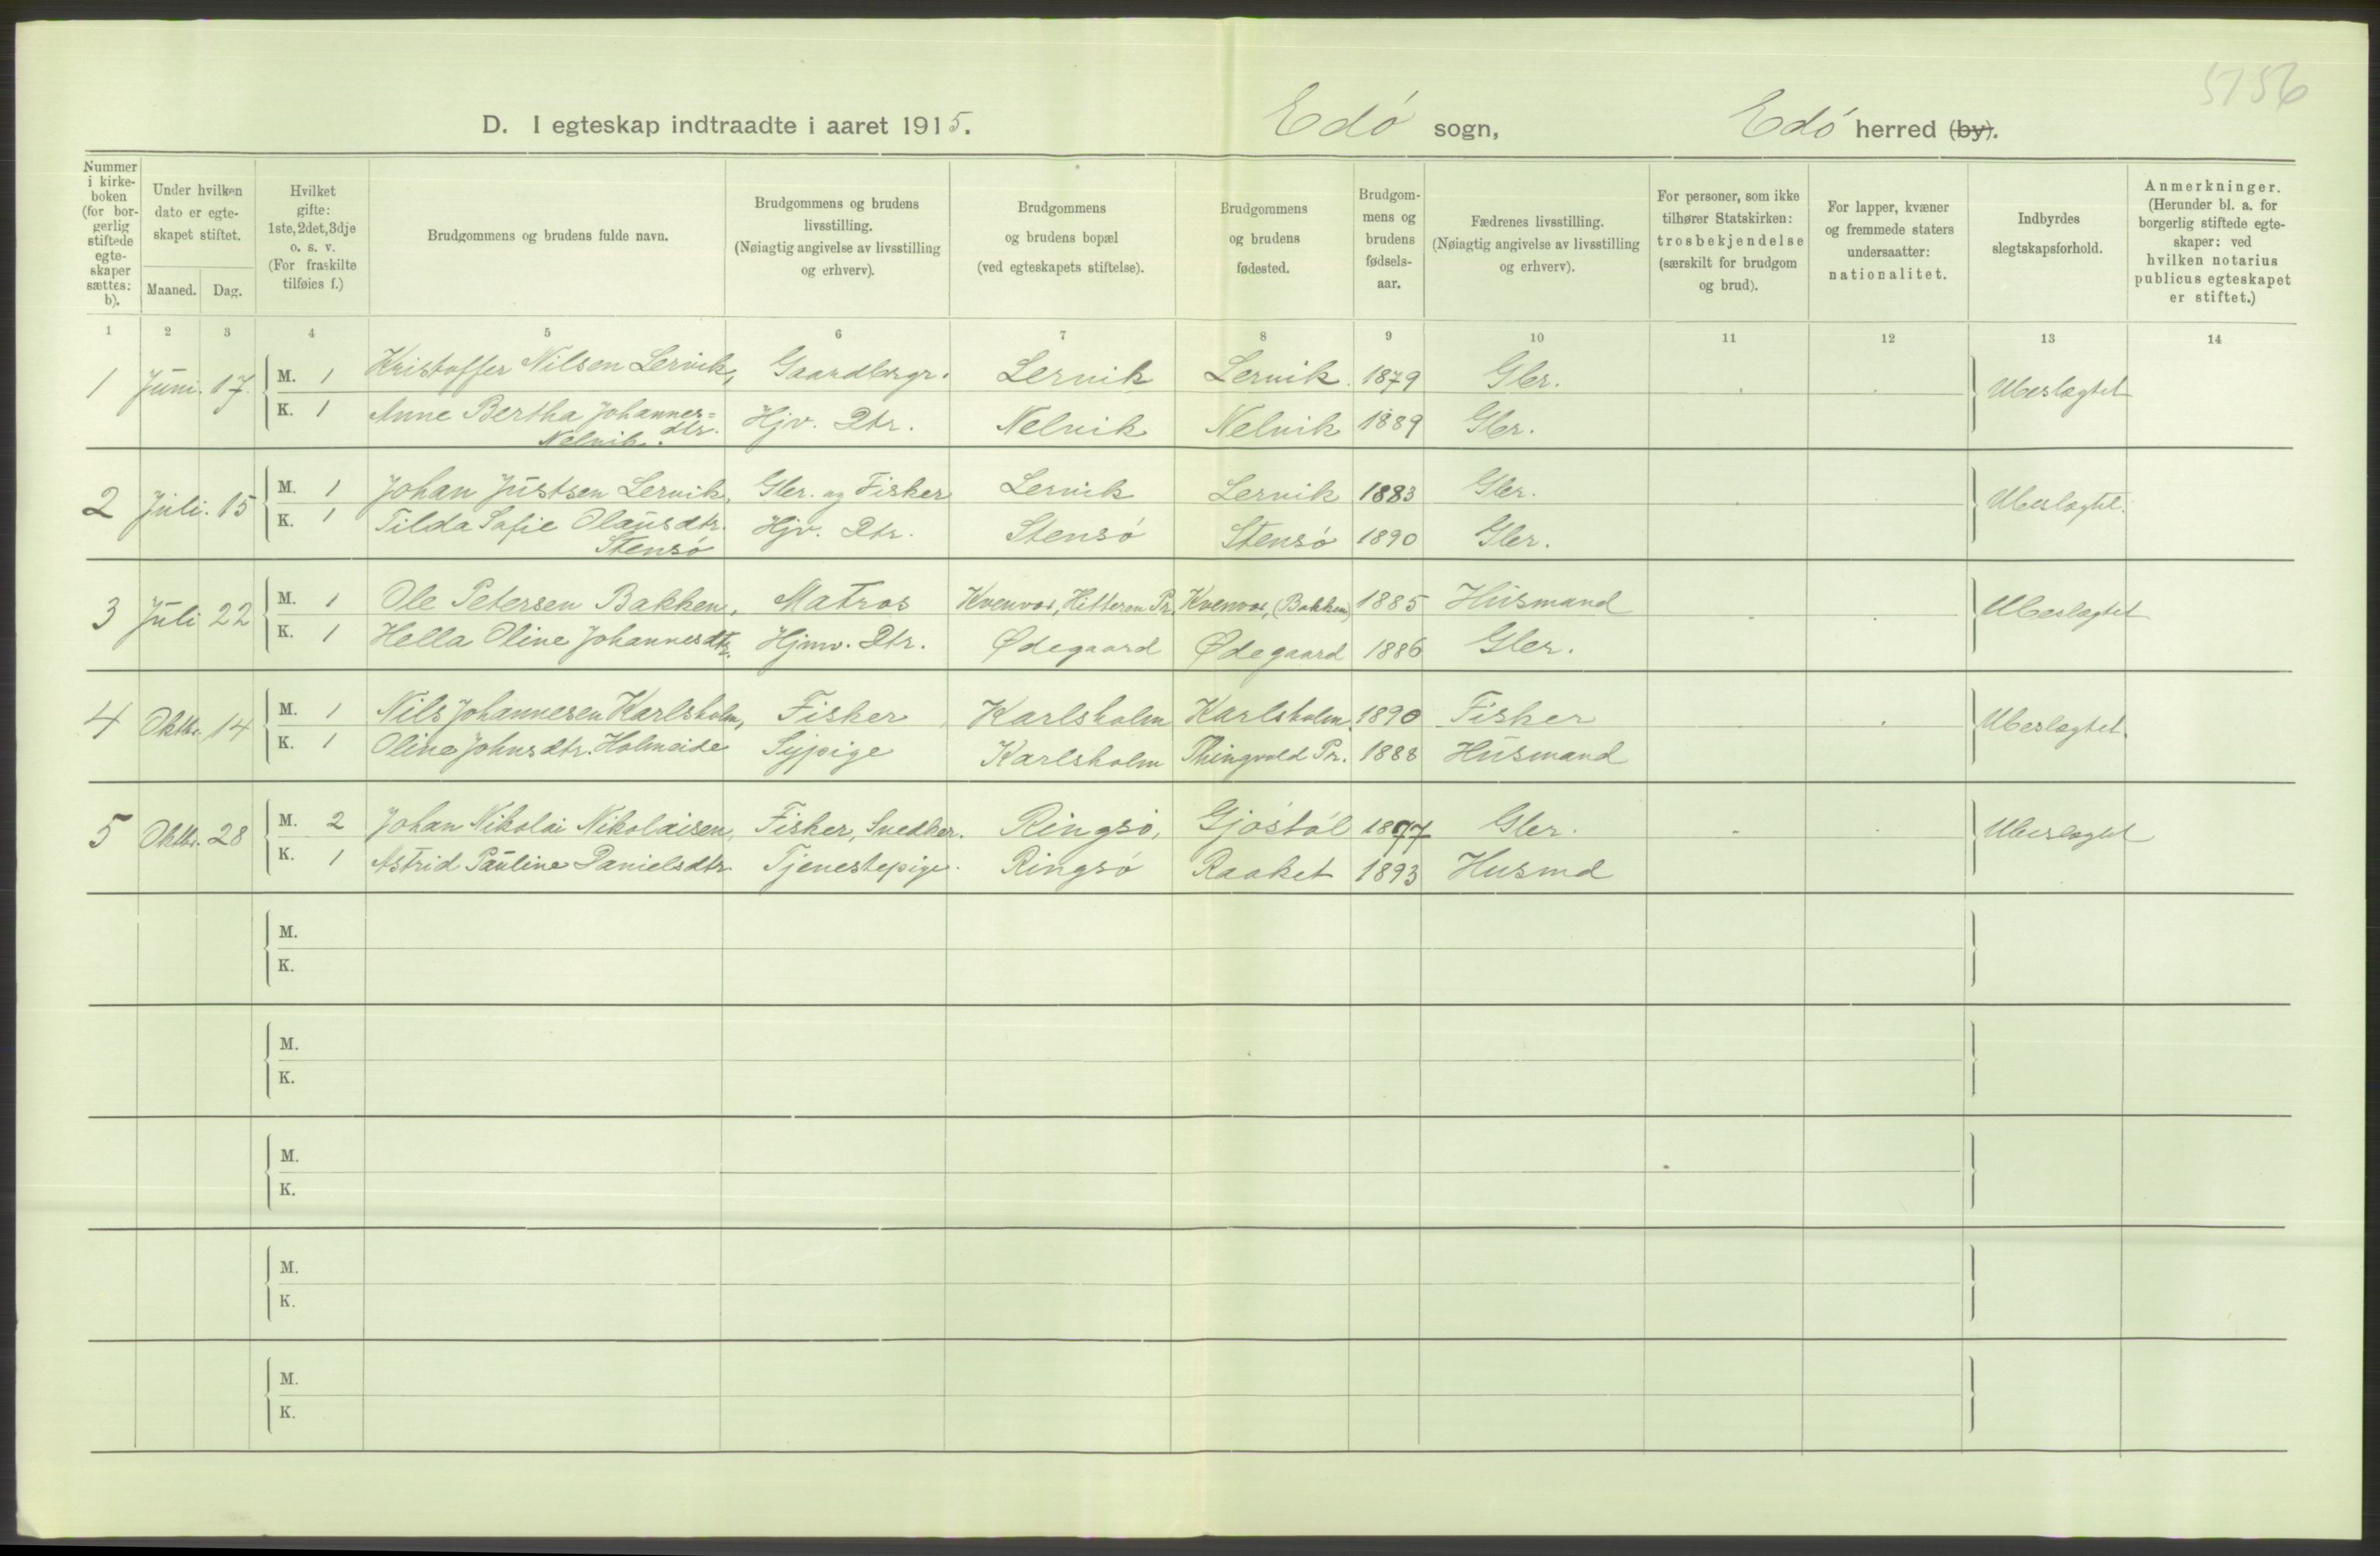 5156
D. I egteskap indtraadte i aaret 1915.
Edó sogn,
Edó herred (by).
Nummer i kirke-boken (for bor-gerlig stiftede egte-skaper sættes: b).
Under hvilken dato er egte-skapet stiftet.
Maaned. Dag.
Hvilket gifte: 1ste, 2det, 3dje o. s. v. (For fraskilte tilføies f.)
Brudgommens og brudens fulde navn.
Brudgommens og brudens livsstilling. (Nøiagtig angivelse av livsstilling og erhverv).
Brudgommens og brudens bopæl (ved egteskapets stiftelse).
Brudgommens og brudens fødested.
Brudgom-mens og brudens fødsels-aar.
Fædrenes livsstilling. (Nøiagtig angivelse av livsstilling og erhverv).
For personer, som ikke tilhører Statskirken: trosbekjendelse (særskilt for brudgom og brud).
For lapper, kvæner og fremmede staters undersaatter: nationalitet.
Indbyrdes slegtskapsforhold.
Anmerkninger. (Herunder bl. a. for borgerlig stiftede egte-skaper: ved hvilken notarius publicus egteskapet er stiftet.)
1 2 3 4 5 6 7 8 9 10 11 12 13 14
1 Juni. 17. M. 1 Kristoffer Nilsen Lervik, Gaardbrgr. Lervik Lervik. 1879 Gbr. Ubeslægtet
K. 1 Anne Bertha Johannes=dtr. Nelvik. Hjv. Dtr. Nelvik Nelvik 1889 Gbr.
2 Juli. 15 M. 1 Johan Justsen Lervik, Gbr. og Fisker Lervik Lervik 1883 Gbr. Ubeslægtet.
K. 1 Tilda Sofie Olausdtr. Stensó Hjv. Dtr. Stensó Stensó 1890 Gbr.
3 Juli 22 M. 1 Ole Petersen Bakken, Matros Kvenvær, Hitteren Pr. Kvenvær, (Bakken) 1885 Husmand Ubeslægtet
K. 1 Hella Oline Johannesdtr. Hjmv. Dtr. Ødegaard Ødegaard 1886 Gbr.
4 Oktbr. 14 M. 1 Nils Johannesen Karlsholm, Fisker Karlsholm Karlsholm 1890 Fisker Ubeslægtet.
K. 1 Oline Johnsdtr. Holmeide Sypige Karlsholm Thingvold Pr. 1888 Husmand
5 Oktbr. 28 M. 2 Johan Nikolai Nikolaisen, Fisker, Snedker. Ringsó, Gjóstól 1877 Gbr. Ubeslægtet
K. 1 Astrid Pauline Danielsdtr. Tjenestepige. Ringsó Raaket 1893 Husmd
M.
K.
M.
K.
M.
K.
M.
K.
M.
K.